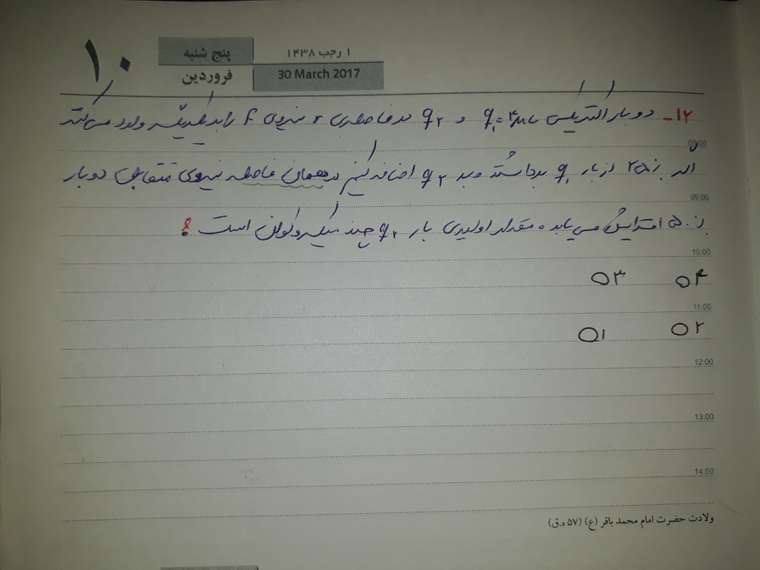 ۱۰
پنج شنبه
۱ رجب ۱۴۳۸
فروردین
30 March 2017
۱۲- دو بار الکتریکی q₁=۴μc و q₂ در فاصله‌ی r نیروی F را به یکدیگر وارد می‌کنند
اگر ٪۲۵ از بار q₁ برداشته و به q₂ اضافه کنیم در همان فاصله نیروی متقابل دو بار
09:00
٪۵۰ افزایش می‌یابد. مقدار اولیه‌ی بار q₂ چند میکروکولن است؟
10:00
۴ ۳
11:00
۲ ۱
12:00
13:00
14:00
ولادت حضرت امام محمد باقر (ع) (۵۷ ه.ق)